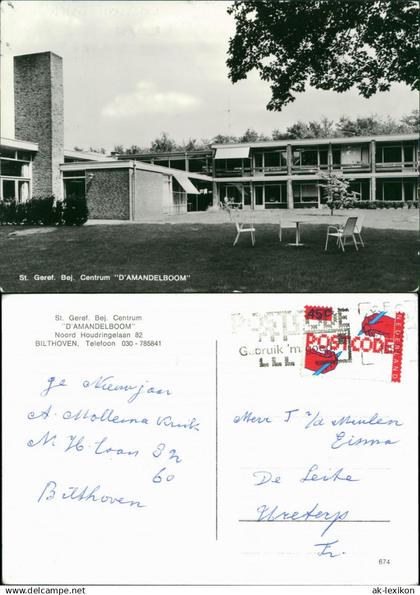 St. Geref. Bej. Centrum "D'AMANDELBOOM"
St. Geref. Bej. Centrum
"D'AMANDELBOOM"
Noord Houdringelaan 82
BILTHOVEN, Telefoon 030 - 785841
POSTCODE
Gebruik 'm
45c
POSTCODE
NEDERLAND
ge Nieuwjaar
A Mollema
60
Bilthoven
Mevr J v/d Meulen
Eisma
De Leite
Ureterp
Fr.
674
© www.ak-lexikon.de
ak-lexikon.com